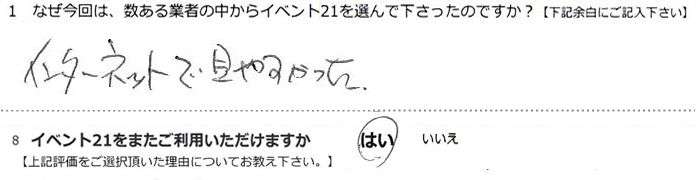 1 なぜ今回は、数ある業者の中からイベント21を選んで下さったのですか？【下記余白にご記入下さい】
インターネットで見やすかった.
8 イベント21をまたご利用いただけますか はい いいえ
【上記評価をご選択頂いた理由についてお教え下さい。】